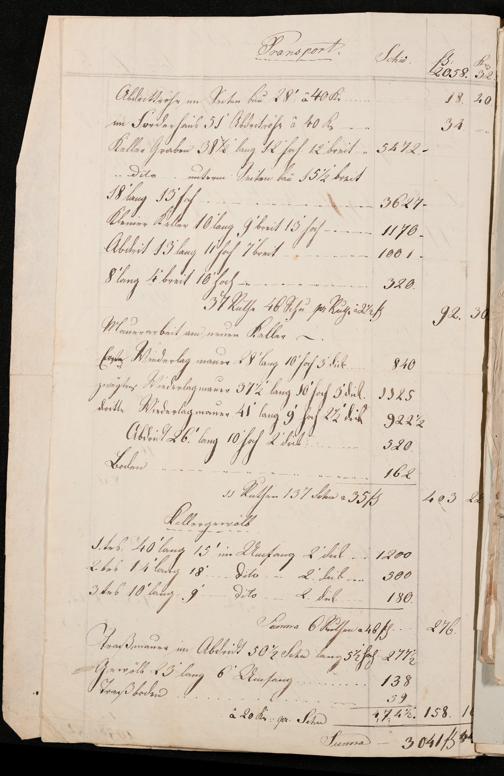 Transport. Schu. fl. Kr.
2058. 52
Abtrittröhr im Seiten bau 28' à 40 Kr 18. 40
im Forderhaus 51' Abtritröhr à 40 Kr 34 -
Keller Graben 38 1/2' lang 12' hoch 12' breit - 5472 -
" dito unterm Seiten bau 15 1/2 breit
18' lang 13' hoch 3627 -
kleiner Keller 10' lang 9' breit 13' hoch 1170 -
Abtrit 13' lang 11' hoch 7' breit 1001 -
8' lang 4' breit 10' hoch 320
37 Ruthe 46 Schu pr Ruthe à 2 1/2 fl 92. 30
Maurerarbeit am neuen Keller
Erste Wiederlag mauer 28' lang 10' hoch 3' dik 840
zweyte Wiederlagmauer 37 1/2' lang 10' hoch 3' dik. 1325
dritte Wiederlagmauer 41' lang 9' hoch 2 1/2' dik 922 1/2
Abtrit 26' lang 10' hoch 2' dik 520
Boden 162
Ruthen 137 Schu à 35 fl 403
Kellergewölb
1tes 40' lang 15' im Umfang 2' dik 1200
2tes 14' lang 18' dito 2' dik 300
3tes 10' lang 9' dito 2' dik 180
Summa 6 Ruthen à 46 fl 276.
Traßmauer im Abtritt 50 1/2 Schu lang 5 1/2 hoch 277 1/2
Gewölb 23 lang 6' Umfang 138
Traßboden 59
à 20 Kr. pr. Schu 474 1/2. 158.
Summa 3041 fl